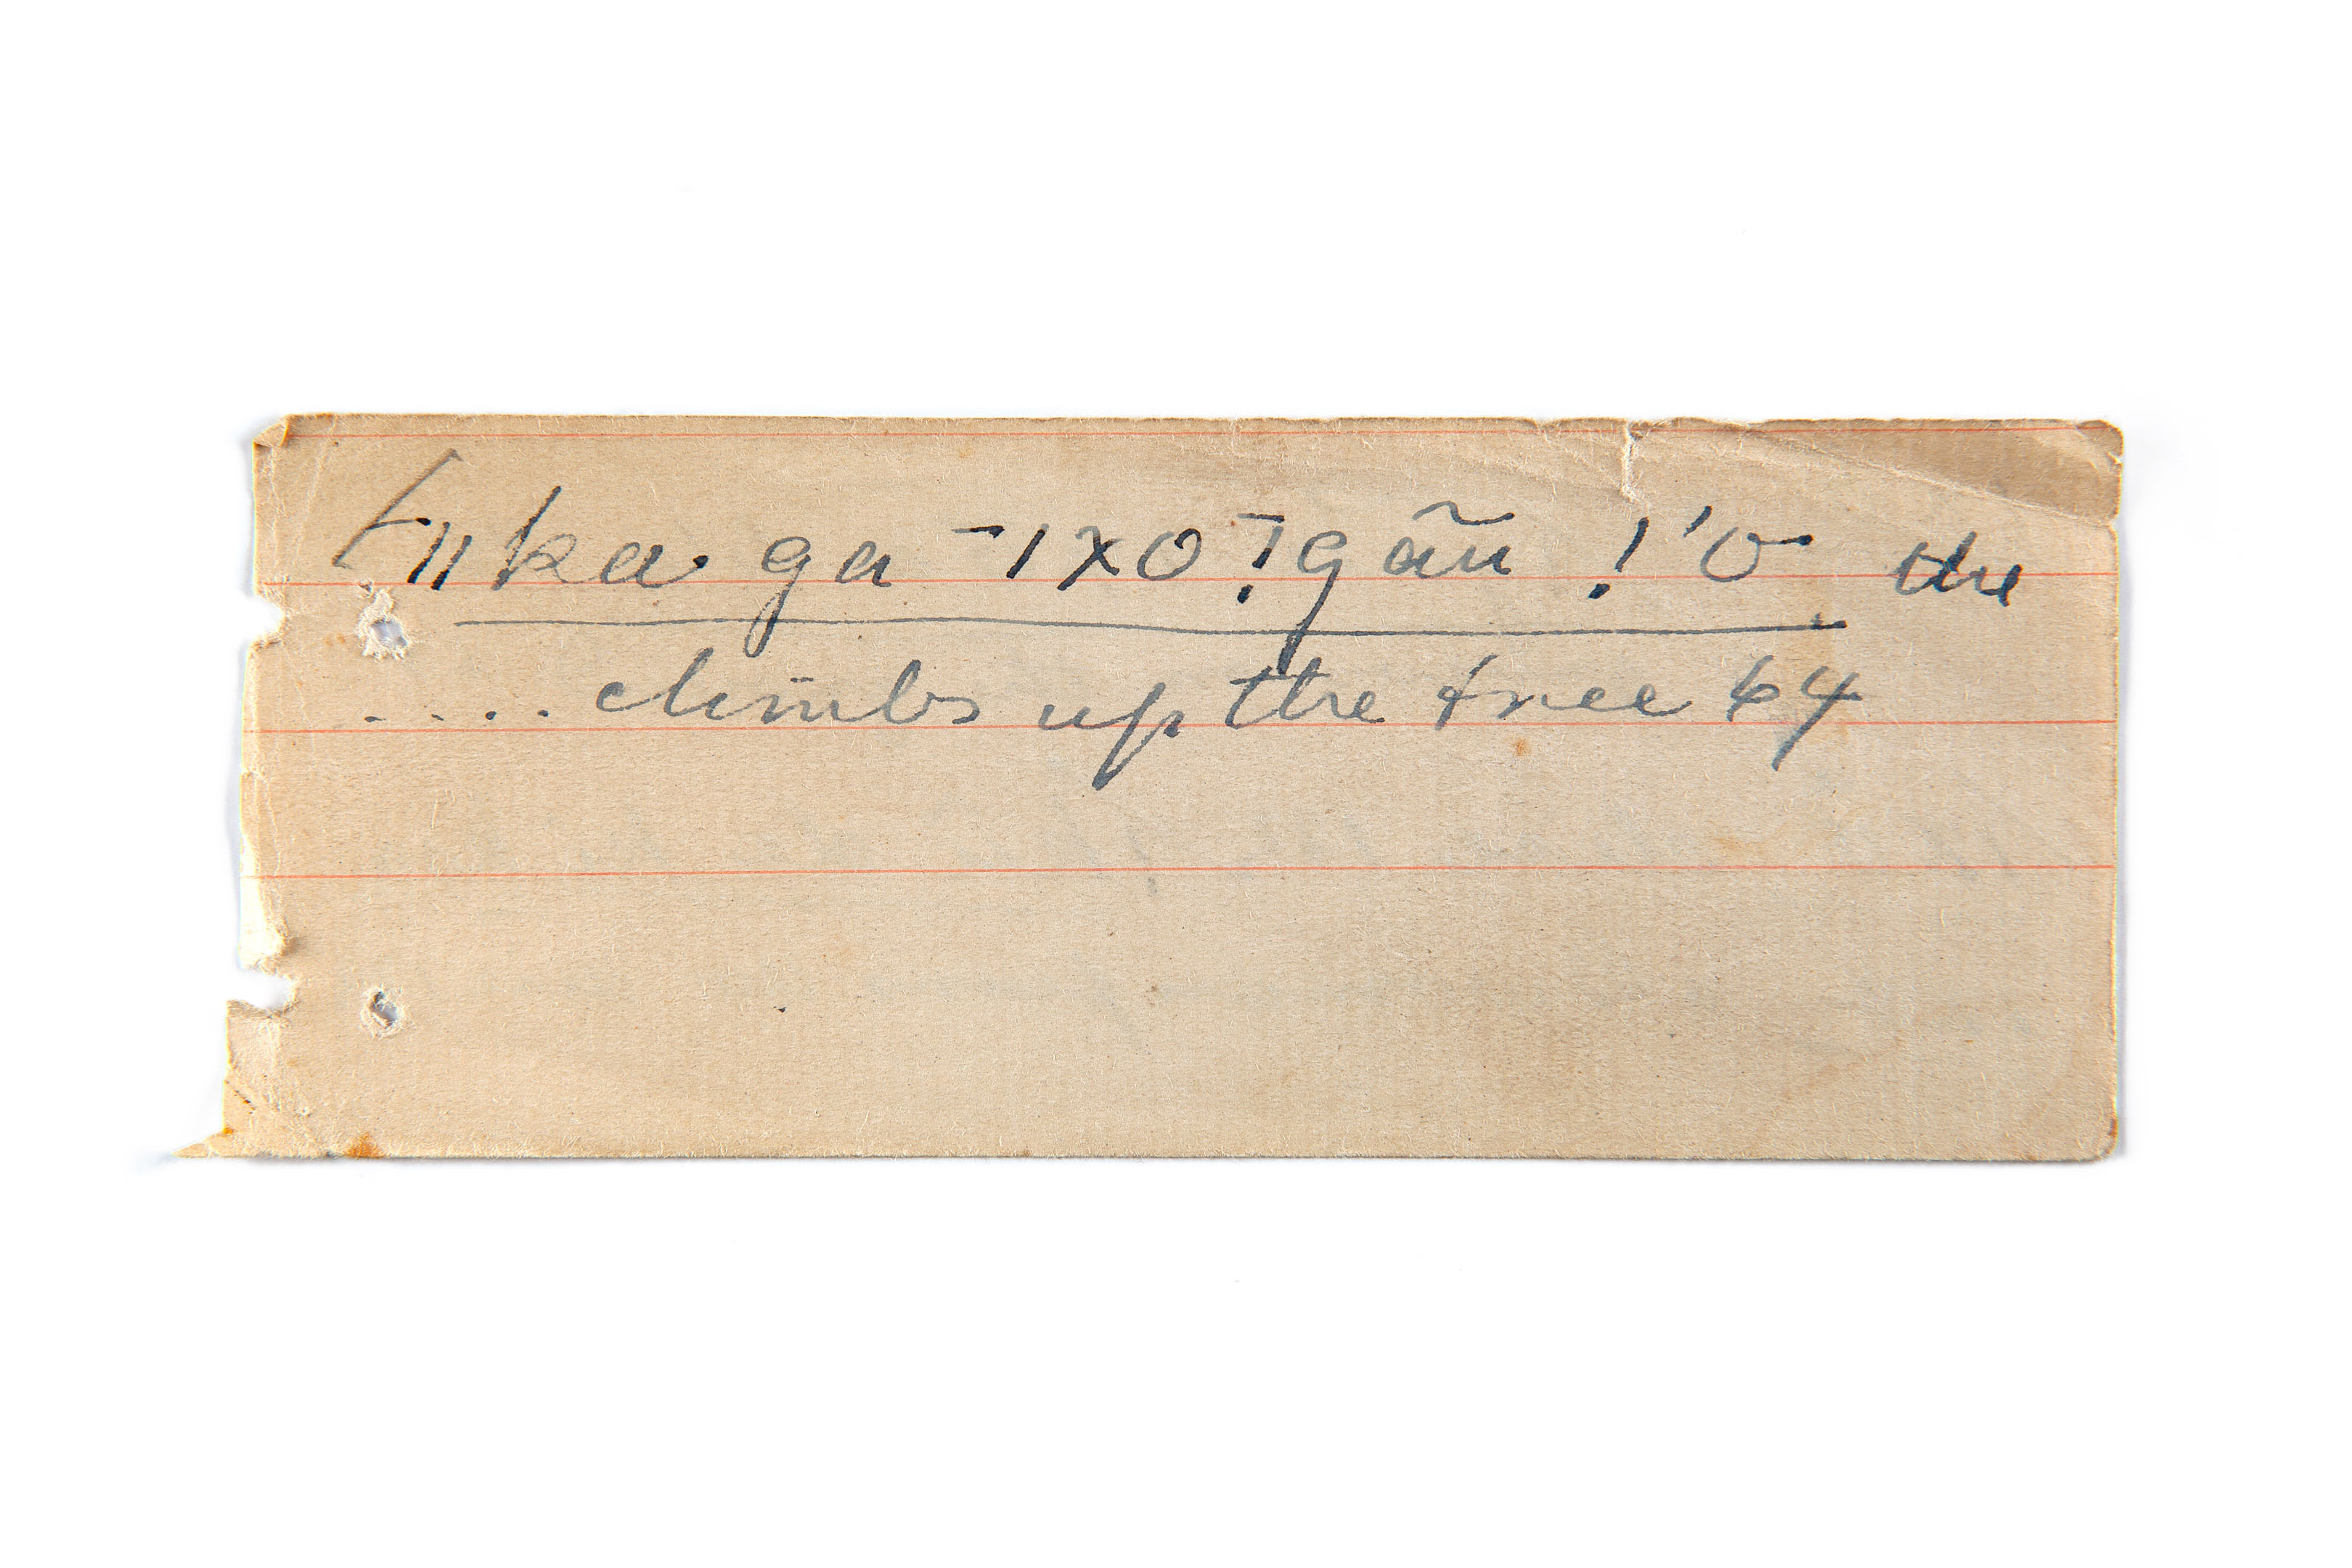 ǁka ga ¯ǀxo ǃ¯gãũ ǃ'o the
.... climbs up the tree 64